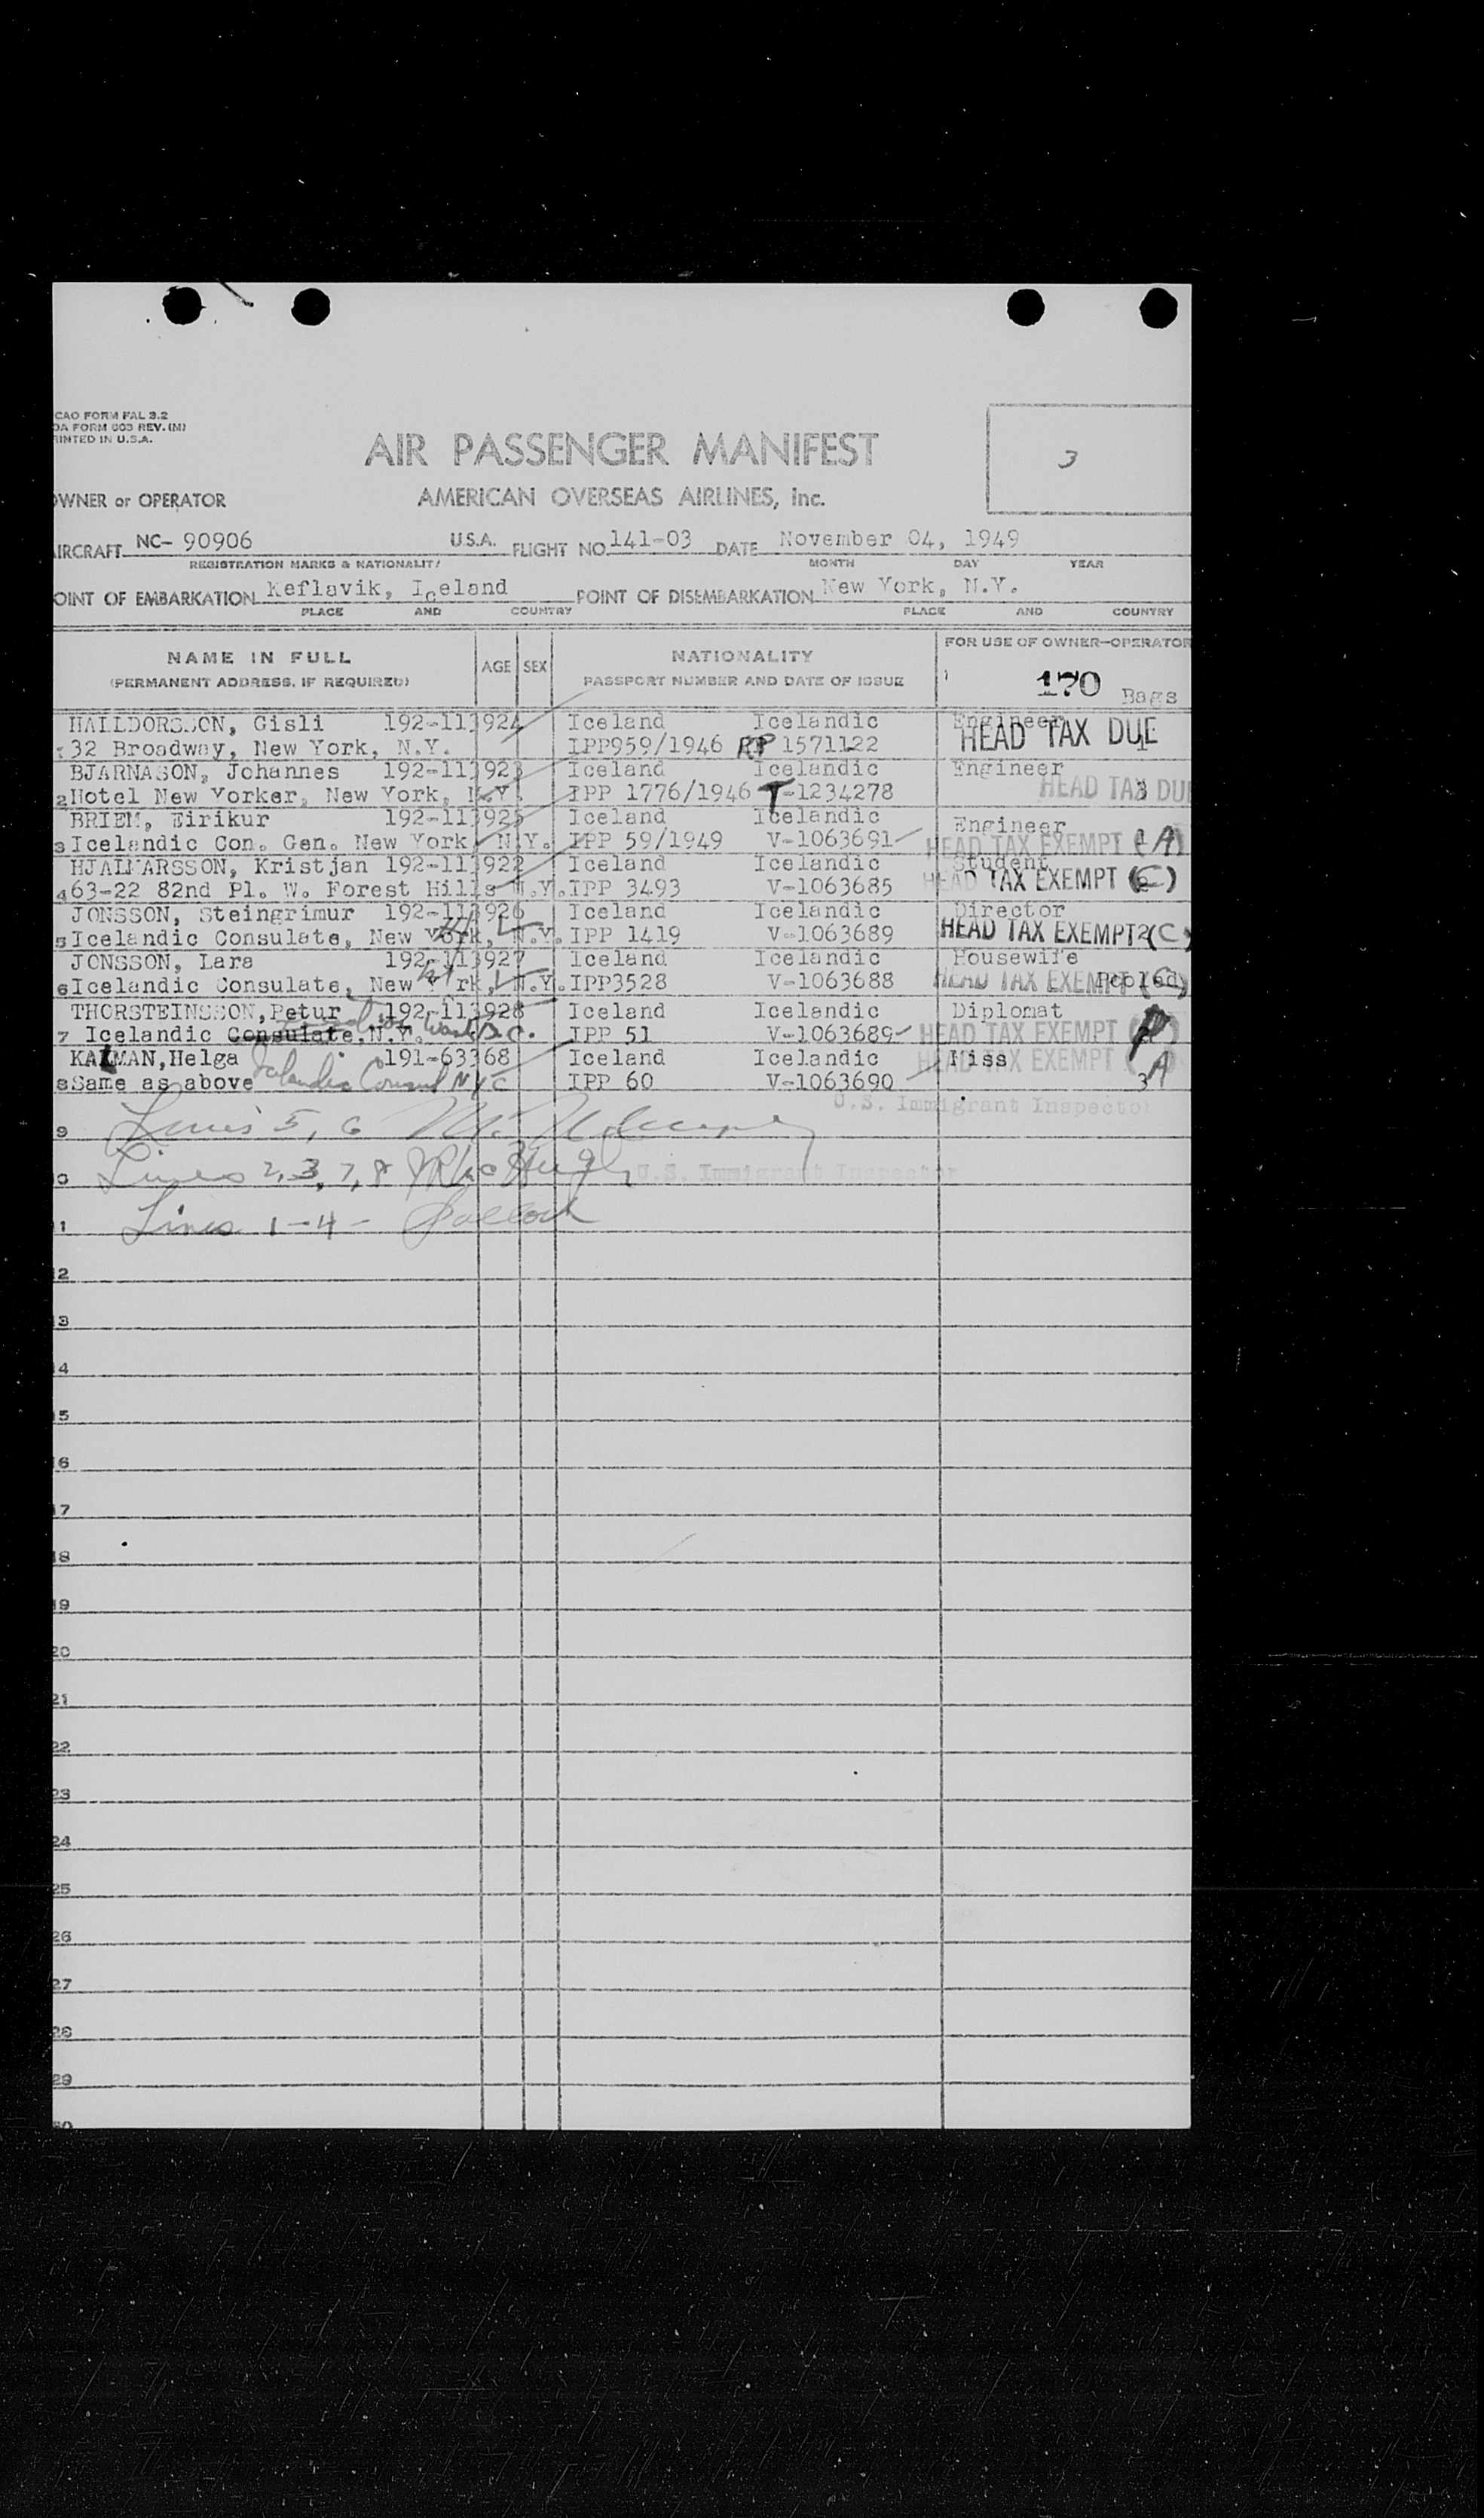 CAO FORM FAL 3.2
OA FORM 603 REV. (M)
RINTED IN U.S.A.
AIR PASSENGER MANIFEST
3
OWNER or OPERATOR AMERICAN OVERSEAS AIRLINES, Inc.
AIRCRAFT NC- 90906 U.S.A. FLIGHT NO. 141-03 DATE November 04, 1949
REGISTRATION MARKS & NATIONALITY MONTH DAY YEAR
OINT OF EMBARKATION Keflavik, Iceland POINT OF DISEMBARKATION New York, N.Y.
PLACE AND COUNTRY PLACE AND COUNTRY
NAME IN FULL AGE SEX NATIONALITY FOR USE OF OWNER-OPERATOR
(PERMANENT ADDRESS, IF REQUIRED) PASSPORT NUMBER AND DATE OF ISSUE 170 Bags
HALLDORSSON, Gisli 192-113924 Iceland Icelandic Engineer
32 Broadway, New York, N.Y. IPP959/1946 RP 1571122 HEAD TAX DUE
BJARNASON, Johannes 192-113923 Iceland Icelandic Engineer
2 Hotel New Yorker, New York, N.Y. IPP 1776/1946 T-1234278 HEAD TAX DUE 3
BRIEM, Eirikur 192-113925 Iceland Icelandic Engineer
3 Icelandic Con. Gen. New York N.Y. IPP 59/1949 V-1063691 HEAD TAX EXEMPT (A)
HJALMARSSON, Kristjan 192-113922 Iceland Icelandic Student
4 63-22 82nd Pl. W. Forest Hills N.Y. IPP 3493 V-1063685 HEAD TAX EXEMPT (C)
JONSSON, Steingrimur 192-113926 Iceland Icelandic Director
5 Icelandic Consulate, New York, N.Y. IPP 1419 V-1063689 HEAD TAX EXEMPT 2 (C)
JONSSON, Lara 192-113927 Iceland Icelandic Housewife
6 Icelandic Consulate, New York, N.Y. IPP3528 V-1063688 HEAD TAX EXEMPT (C)
THORSTEINSSON, Petur 192-113928 Iceland Icelandic Diplomat
7 Icelandic Consulate, N.Y. Wash D.C. IPP 51 V-1063689 HEAD TAX EXEMPT
KALMAN, Helga 191-63368 Iceland Icelandic Miss HEAD TAX EXEMPT
8 Same as above Icelandic Consul NYC IPP 60 V-1063690 3 A
U.S. Immigrant Inspector
9 Lines 5, 6
10 Lines 2, 3, 7, 8 U.S. Immigrant Inspector
11 Lines 1-4-
12
13
14
15
16
17
18
19
20
21
22
23
24
25
26
27
28
29
30